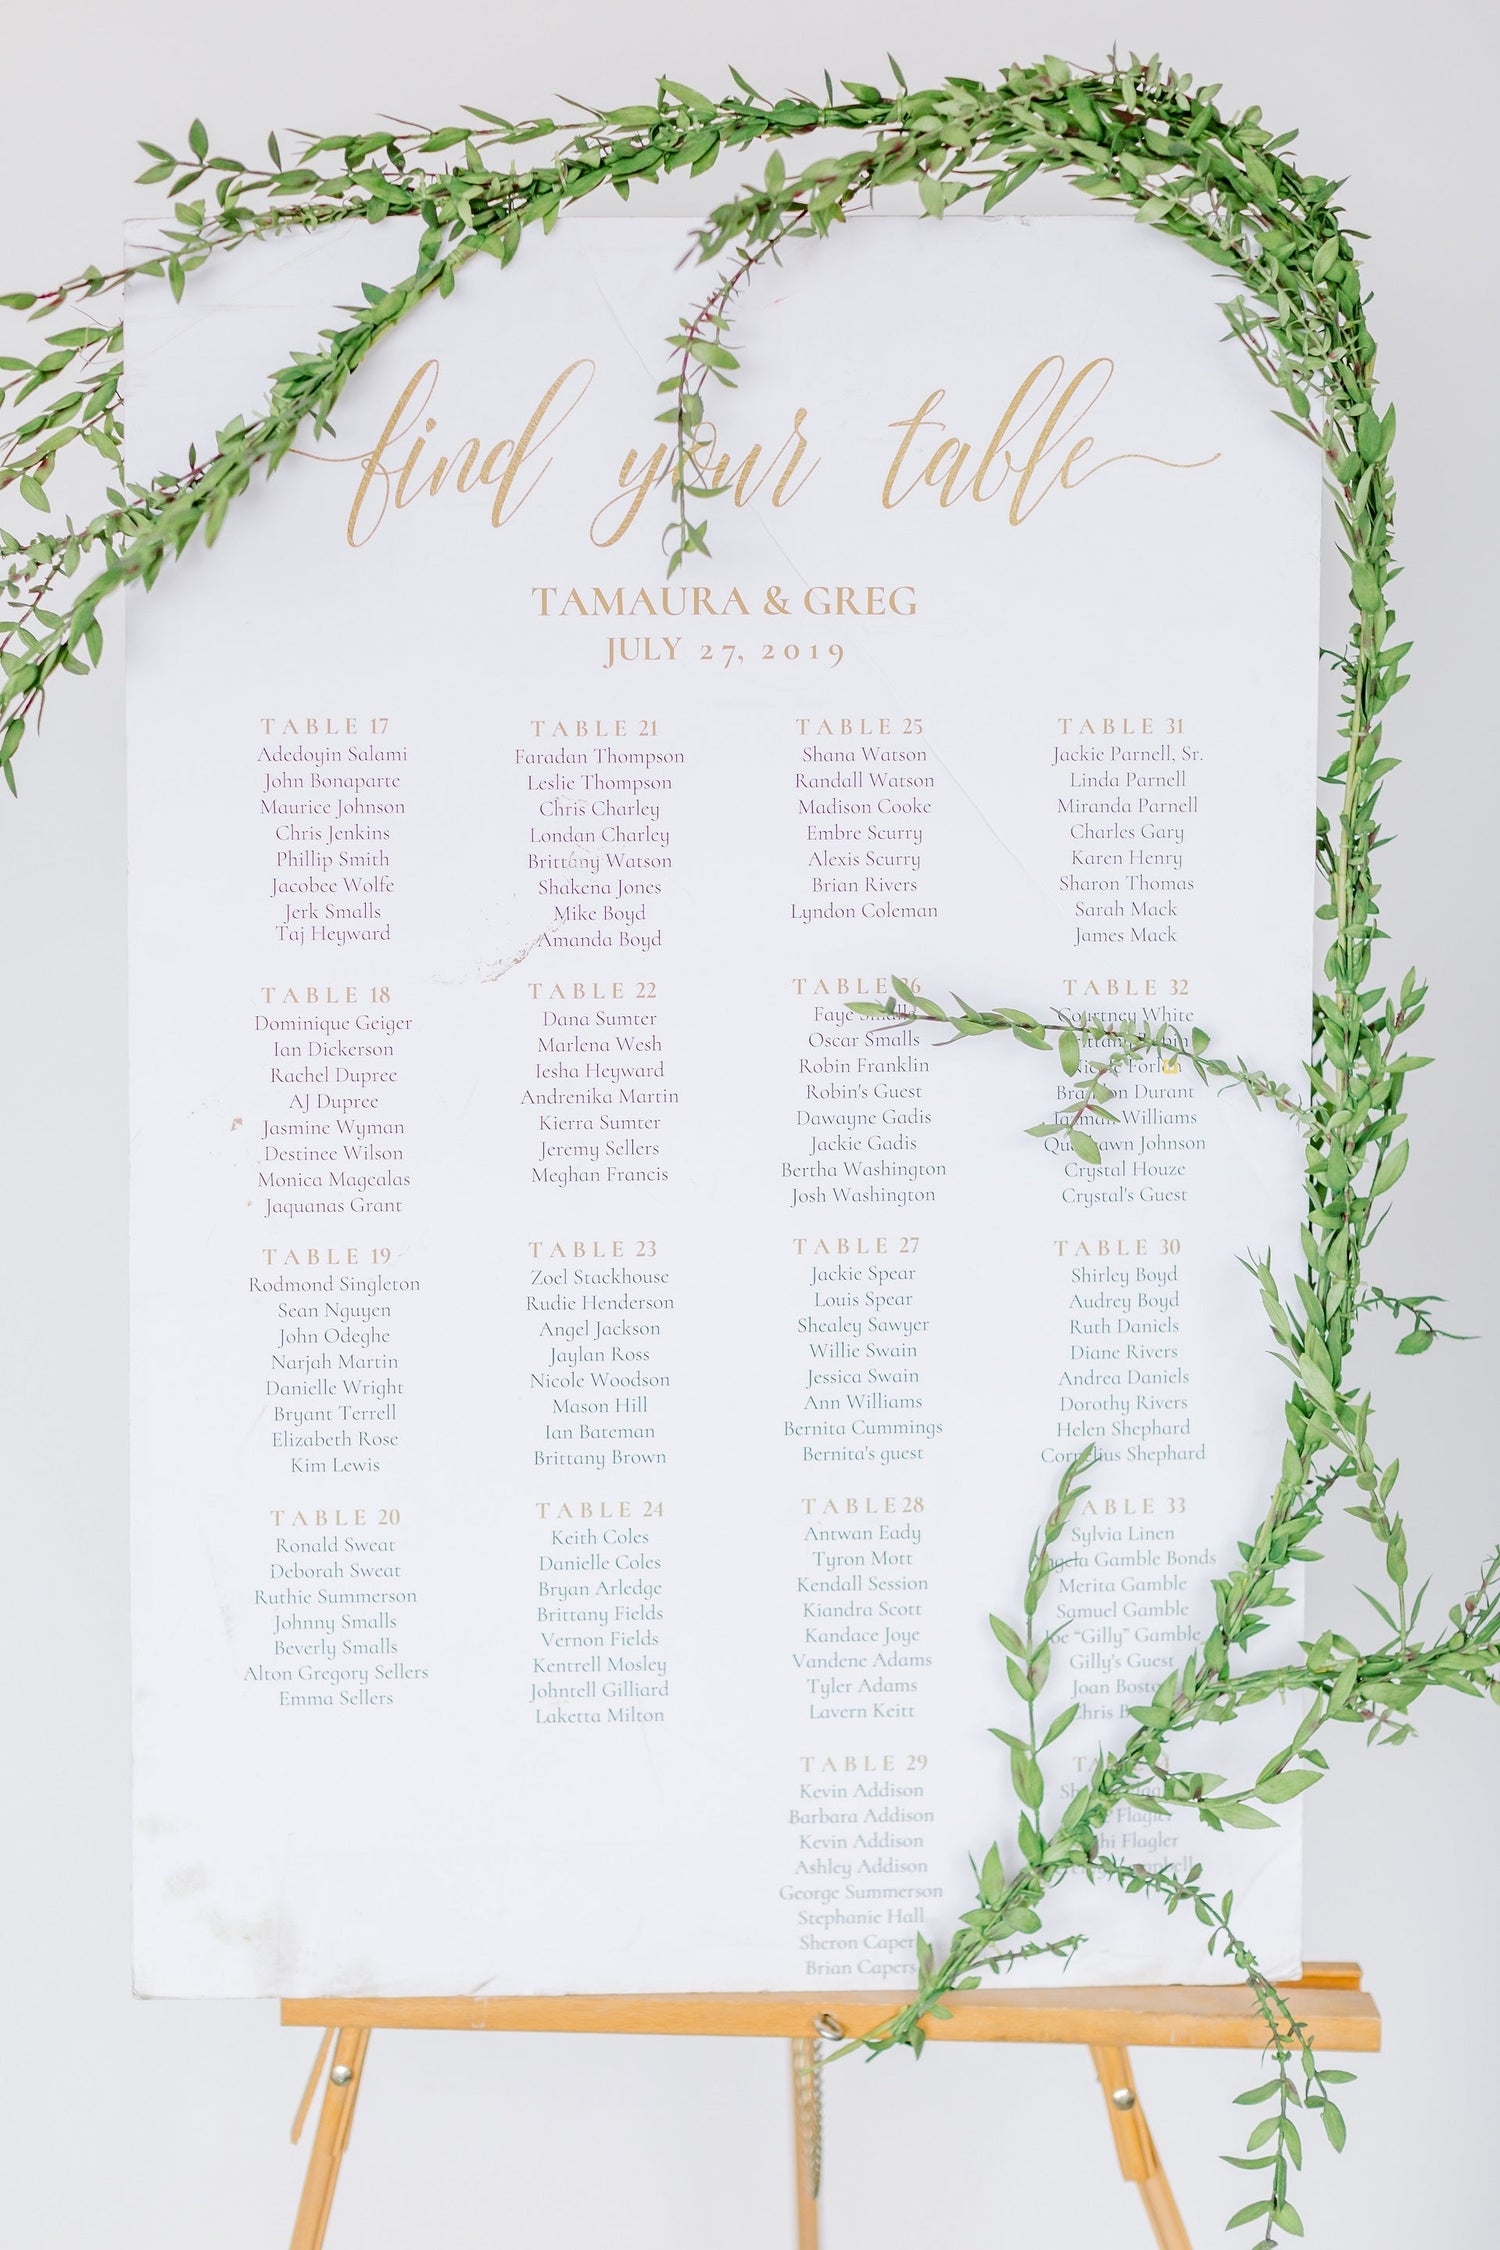 find your table
TAMAURA & GREG
JULY 27, 2019
TABLE 17
Adedoyin Salami
John Bonaparte
Maurice Johnson
Chris Jenkins
Phillip Smith
Jacobee Wolfe
Jerk Smalls
Taj Heyward
TABLE 18
Dominique Geiger
Ian Dickerson
Rachel Dupree
AJ Dupree
Jasmine Wyman
Destinee Wilson
Monica Magcalas
Jaquanas Grant
TABLE 19
Rodmond Singleton
Sean Nguyen
John Odeghe
Narjah Martin
Danielle Wright
Bryant Terrell
Elizabeth Rose
Kim Lewis
TABLE 20
Ronald Sweat
Deborah Sweat
Ruthie Summerson
Johnny Smalls
Beverly Smalls
Alton Gregory Sellers
Emma Sellers
TABLE 21
Faradan Thompson
Leslie Thompson
Chris Charley
Londan Charley
Brittany Watson
Shakena Jones
Mike Boyd
Amanda Boyd
TABLE 22
Dana Sumter
Marlena Wesh
Iesha Heyward
Andrenika Martin
Kierra Sumter
Jeremy Sellers
Meghan Francis
TABLE 23
Zoel Stackhouse
Rudie Henderson
Angel Jackson
Jaylan Ross
Nicole Woodson
Mason Hill
Ian Bateman
Brittany Brown
TABLE 24
Keith Coles
Danielle Coles
Bryan Arledge
Brittany Fields
Vernon Fields
Kentrell Mosley
Johntell Gilliard
Laketta Milton
TABLE 25
Shana Watson
Randall Watson
Madison Cooke
Embre Scurry
Alexis Scurry
Brian Rivers
Lyndon Coleman
TABLE 26
Faye Smalls
Oscar Smalls
Robin Franklin
Robin's Guest
Dawayne Gadis
Jackie Gadis
Bertha Washington
Josh Washington
TABLE 27
Jackie Spear
Louis Spear
Shealey Sawyer
Willie Swain
Jessica Swain
Ann Williams
Bernita Cummings
Bernita's guest
TABLE28
Antwan Eady
Tyron Mott
Kendall Session
Kiandra Scott
Kandace Joye
Vandene Adams
Tyler Adams
Lavern Keitt
TABLE 29
Kevin Addison
Barbara Addison
Kevin Addison
Ashley Addison
George Summerson
Stephanie Hall
Sheron Capers
Brian Capers
TABLE 31
Jackie Parnell, Sr.
Linda Parnell
Miranda Parnell
Charles Gary
Karen Henry
Sharon Thomas
Sarah Mack
James Mack
TABLE 32
Courtney White
Nicole
Durant
Williams
Johnson
Crystal Houze
Crystal's Guest
TABLE 30
Shirley Boyd
Audrey Boyd
Ruth Daniels
Diane Rivers
Andrea Daniels
Dorothy Rivers
Helen Shephard
Cornelius Shephard
TABLE 33
Sylvia Linen
Angela Gamble Bonds
Merita Gamble
Samuel Gamble
Joe “Gilly” Gamble
Gilly's Guest
Joan
Chris
TABLE
Flagler
Flagler